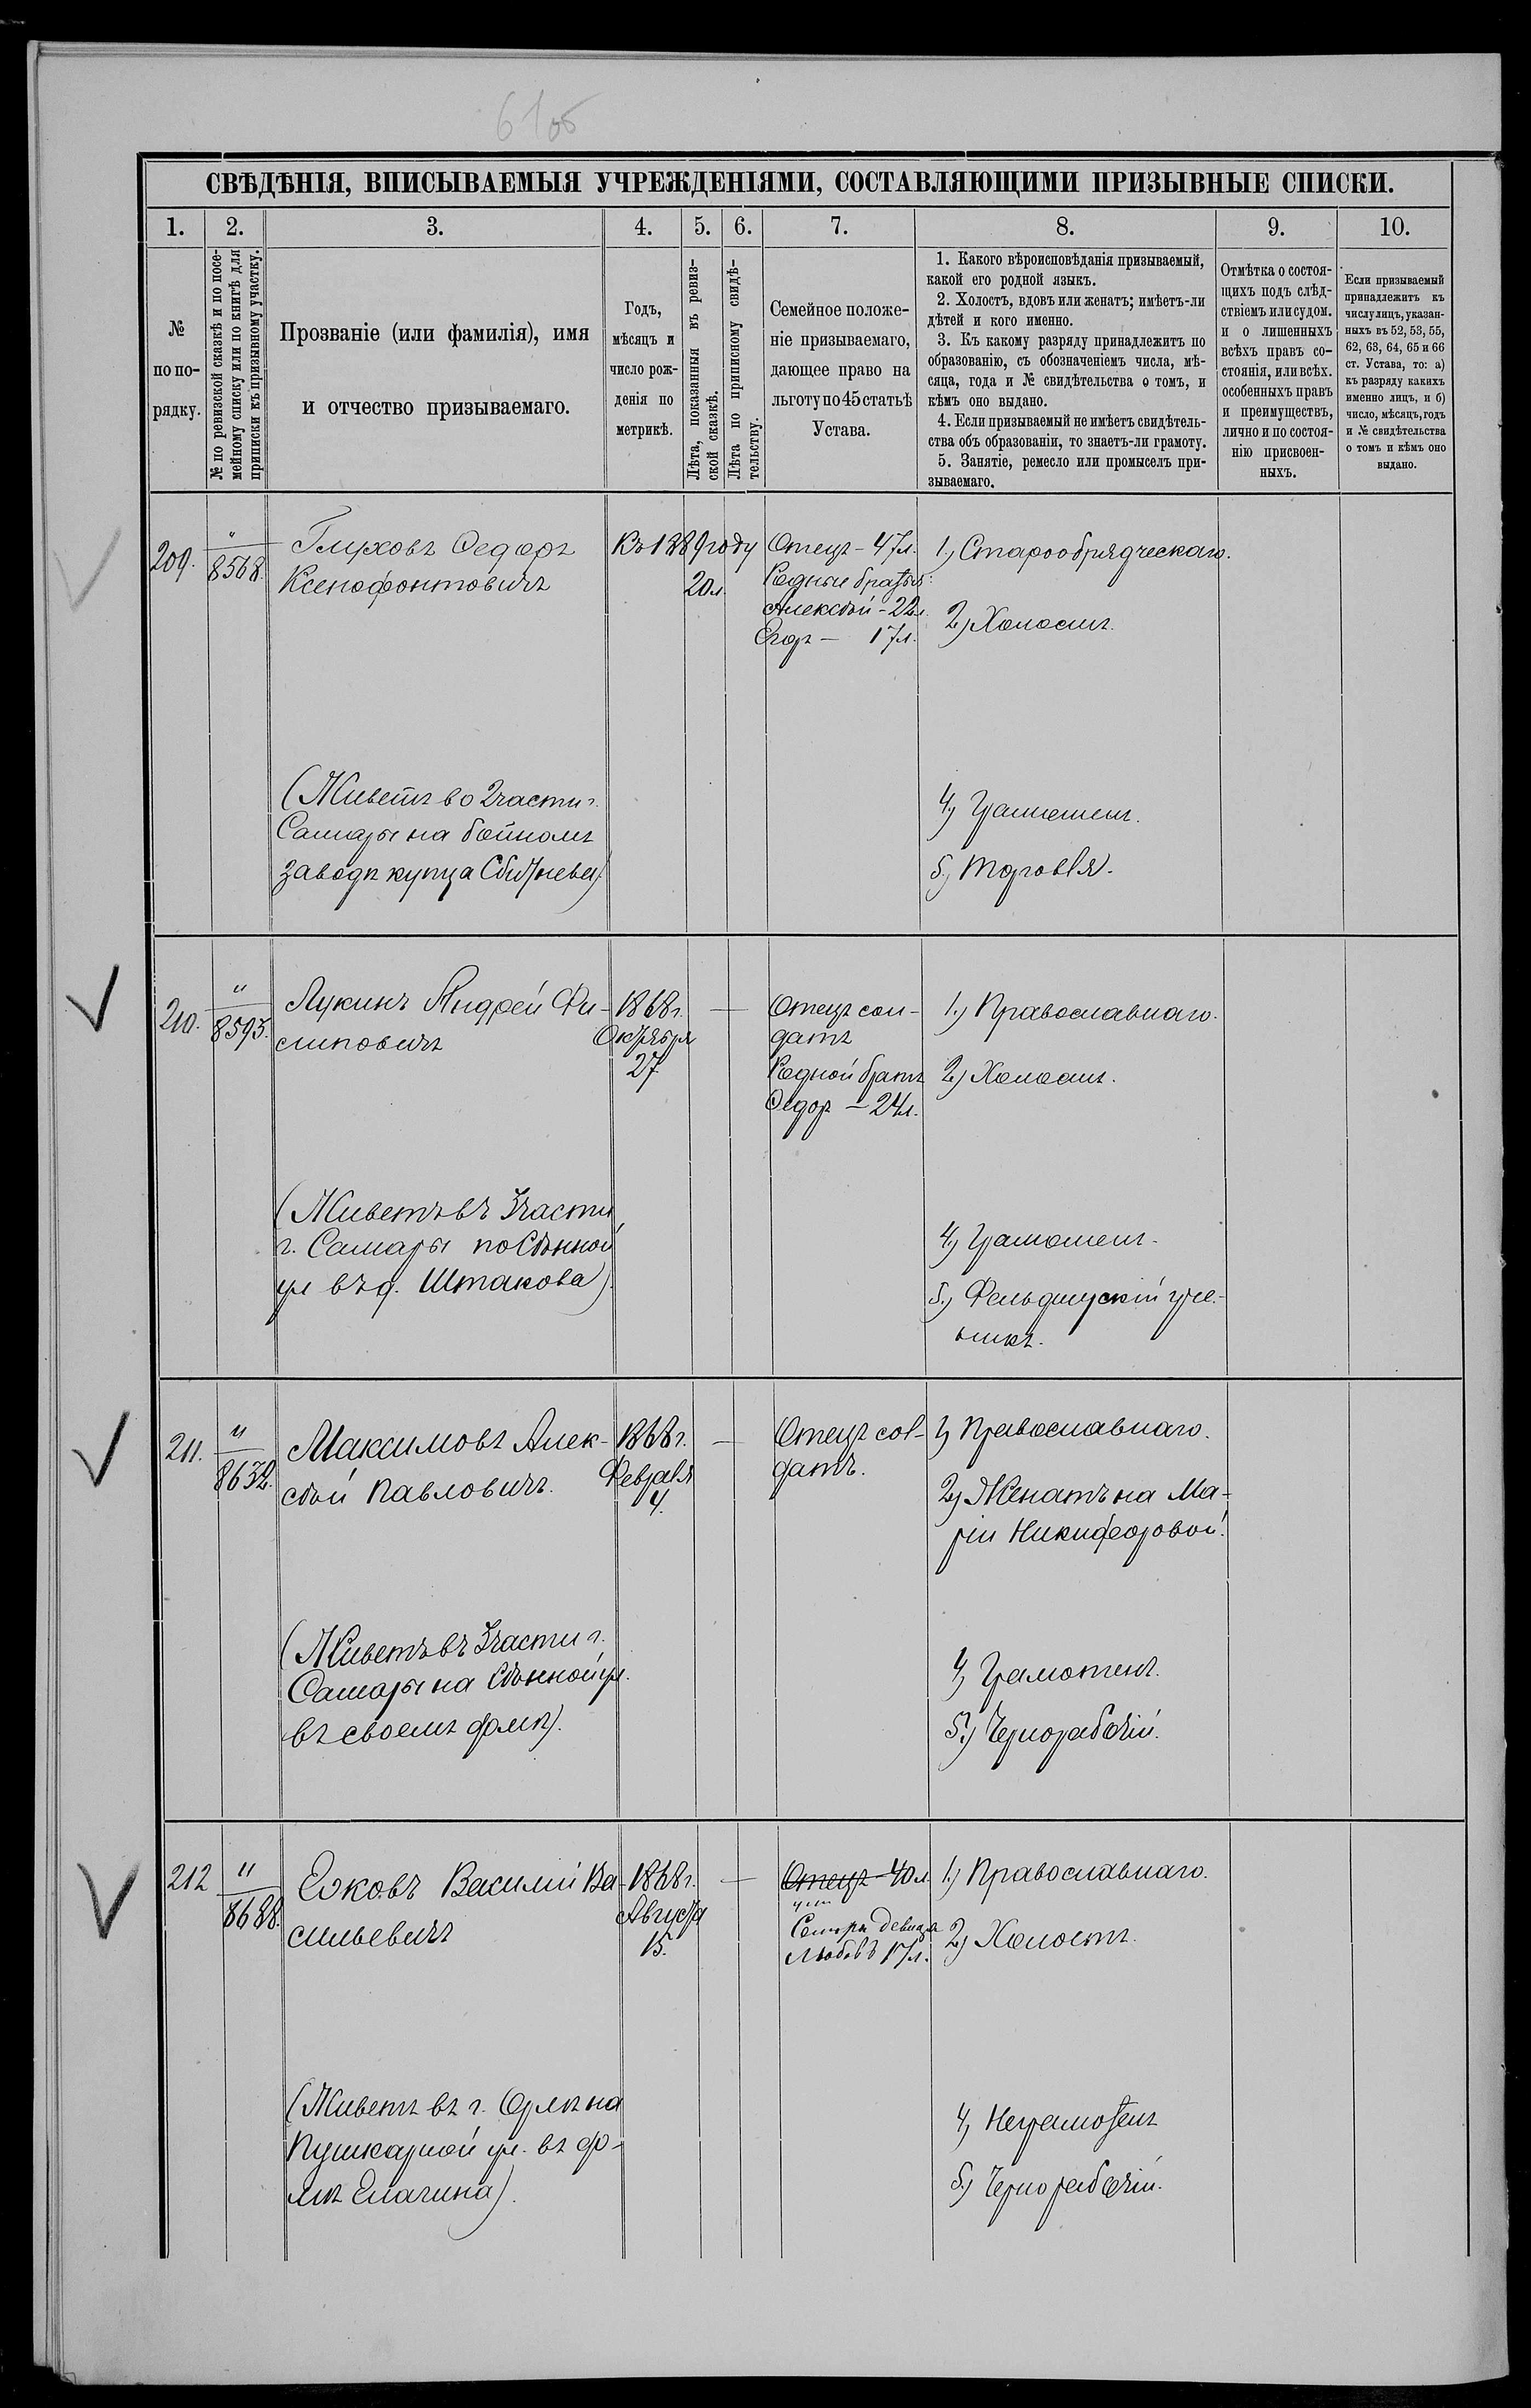 61об
СВѢДѢНІЯ, ВПИСЫВАЕМЫЯ УЧРЕЖДЕНІЯМИ, СОСТАВЛЯЮЩИМИ ПРИЗЫВНЫЕ СПИСКИ.
1. 2. 3. 4. 5. 6. 7. 8. 9. 10.
№
по по-
рядку.
№ по ревизской сказкѣ и по посе-
мейному списку или по книгѣ для
приписки къ призывному участку.
Прозваніе (или фамилія), имя
и отчество призываемаго.
Годъ,
мѣсяцъ и
число рож-
денія по
метрикѣ.
Лѣта, показанныя въ ревиз-
ской сказкѣ.
Лѣта по приписному свидѣ-
тельству.
Семейное положе-
ніе призываемаго,
дающее право на
льготу по 45 статьѣ
Устава.
1. Какого вѣроисповѣданія призываемый,
какой его родной языкъ.
2. Холостъ, вдовъ или женатъ; имѣетъ-ли
дѣтей и кого именно.
3. Къ какому разряду принадлежитъ по
образованію, съ обозначеніемъ числа, мѣ-
сяца, года и № свидѣтельства о томъ, и
кѣмъ оно выдано.
4. Если призываемый не имѣетъ свидѣтель-
ства объ образованіи, то знаетъ-ли грамоту.
5. Занятіе, ремесло или промыселъ при-
зываемаго.
Отмѣтка о состоя-
щихъ подъ слѣд-
ствіемъ или судом.
и о лишенныхъ
всѣхъ правъ со-
стоянія, или всѣх.
особенныхъ правъ
и преимуществъ,
лично и по состоя-
нію присвоен-
ныхъ.
Если призываемый
принадлежитъ къ
числу лицъ, указан-
ныхъ въ 52, 53, 55,
62, 63, 64, 65 и 66
ст. Устава, то: а)
къ разряду какихъ
именно лицъ, и б)
число, мѣсяцъ, годъ
и № свидѣтельства
о томъ и кѣмъ оно
выдано.
209.
"
8568.
Глуховъ Федоръ
Ксенофонтовичъ
Въ 1889 году
20 л.
Отецъ - 47 л.
Родные братья:
Алексѣй - 22 л.
Егоръ - 17 л.
1.) Старообрядческаго.
2.) Холостъ.
(Живетъ во 2 части г.
Самары на бойномъ
заводѣ купца
4.) Грамотенъ.
5.) Торговля.
210.
"
8593.
Лукинъ Андрей Фи-
липовичъ
1868 г.
Октября
27
—
Отецъ сол-
датъ
Родной братъ
Федоръ - 24 л.
1.) Православнаго.
2.) Холостъ.
(Живетъ въ 3 части
г. Самары по Сѣнной
ул въ д. Штакова).
4.) Грамотенъ.
5.) Фельдшерскій уче-
никъ.
211.
"
8632.
Максимовъ Алек-
сѣй Павловичъ.
1868 г.
Февраля
4.
—
Отецъ сол-
датъ.
1) Православнаго.
2) Женатъ на Ма-
ріи Никифоровой.
(Живетъ въ 3 части г.
Самары на Сѣнной ул.
въ своемъ домѣ).
4) Грамотенъ.
5.) Чернорабочій.
212
"
8688.
Ежовъ Василій Ва-
сильевичъ
1868 г.
Августа
15.
—
Отецъ - 40 л
Сестра девица
Любовь 17 л.
1.) Православнаго.
2.) Холостъ.
(Живетъ въ г. Орлѣ на
Пушкарной ул. въ до-
мѣ Елагина).
4) Неграмотенъ
5.) Чернорабочій.